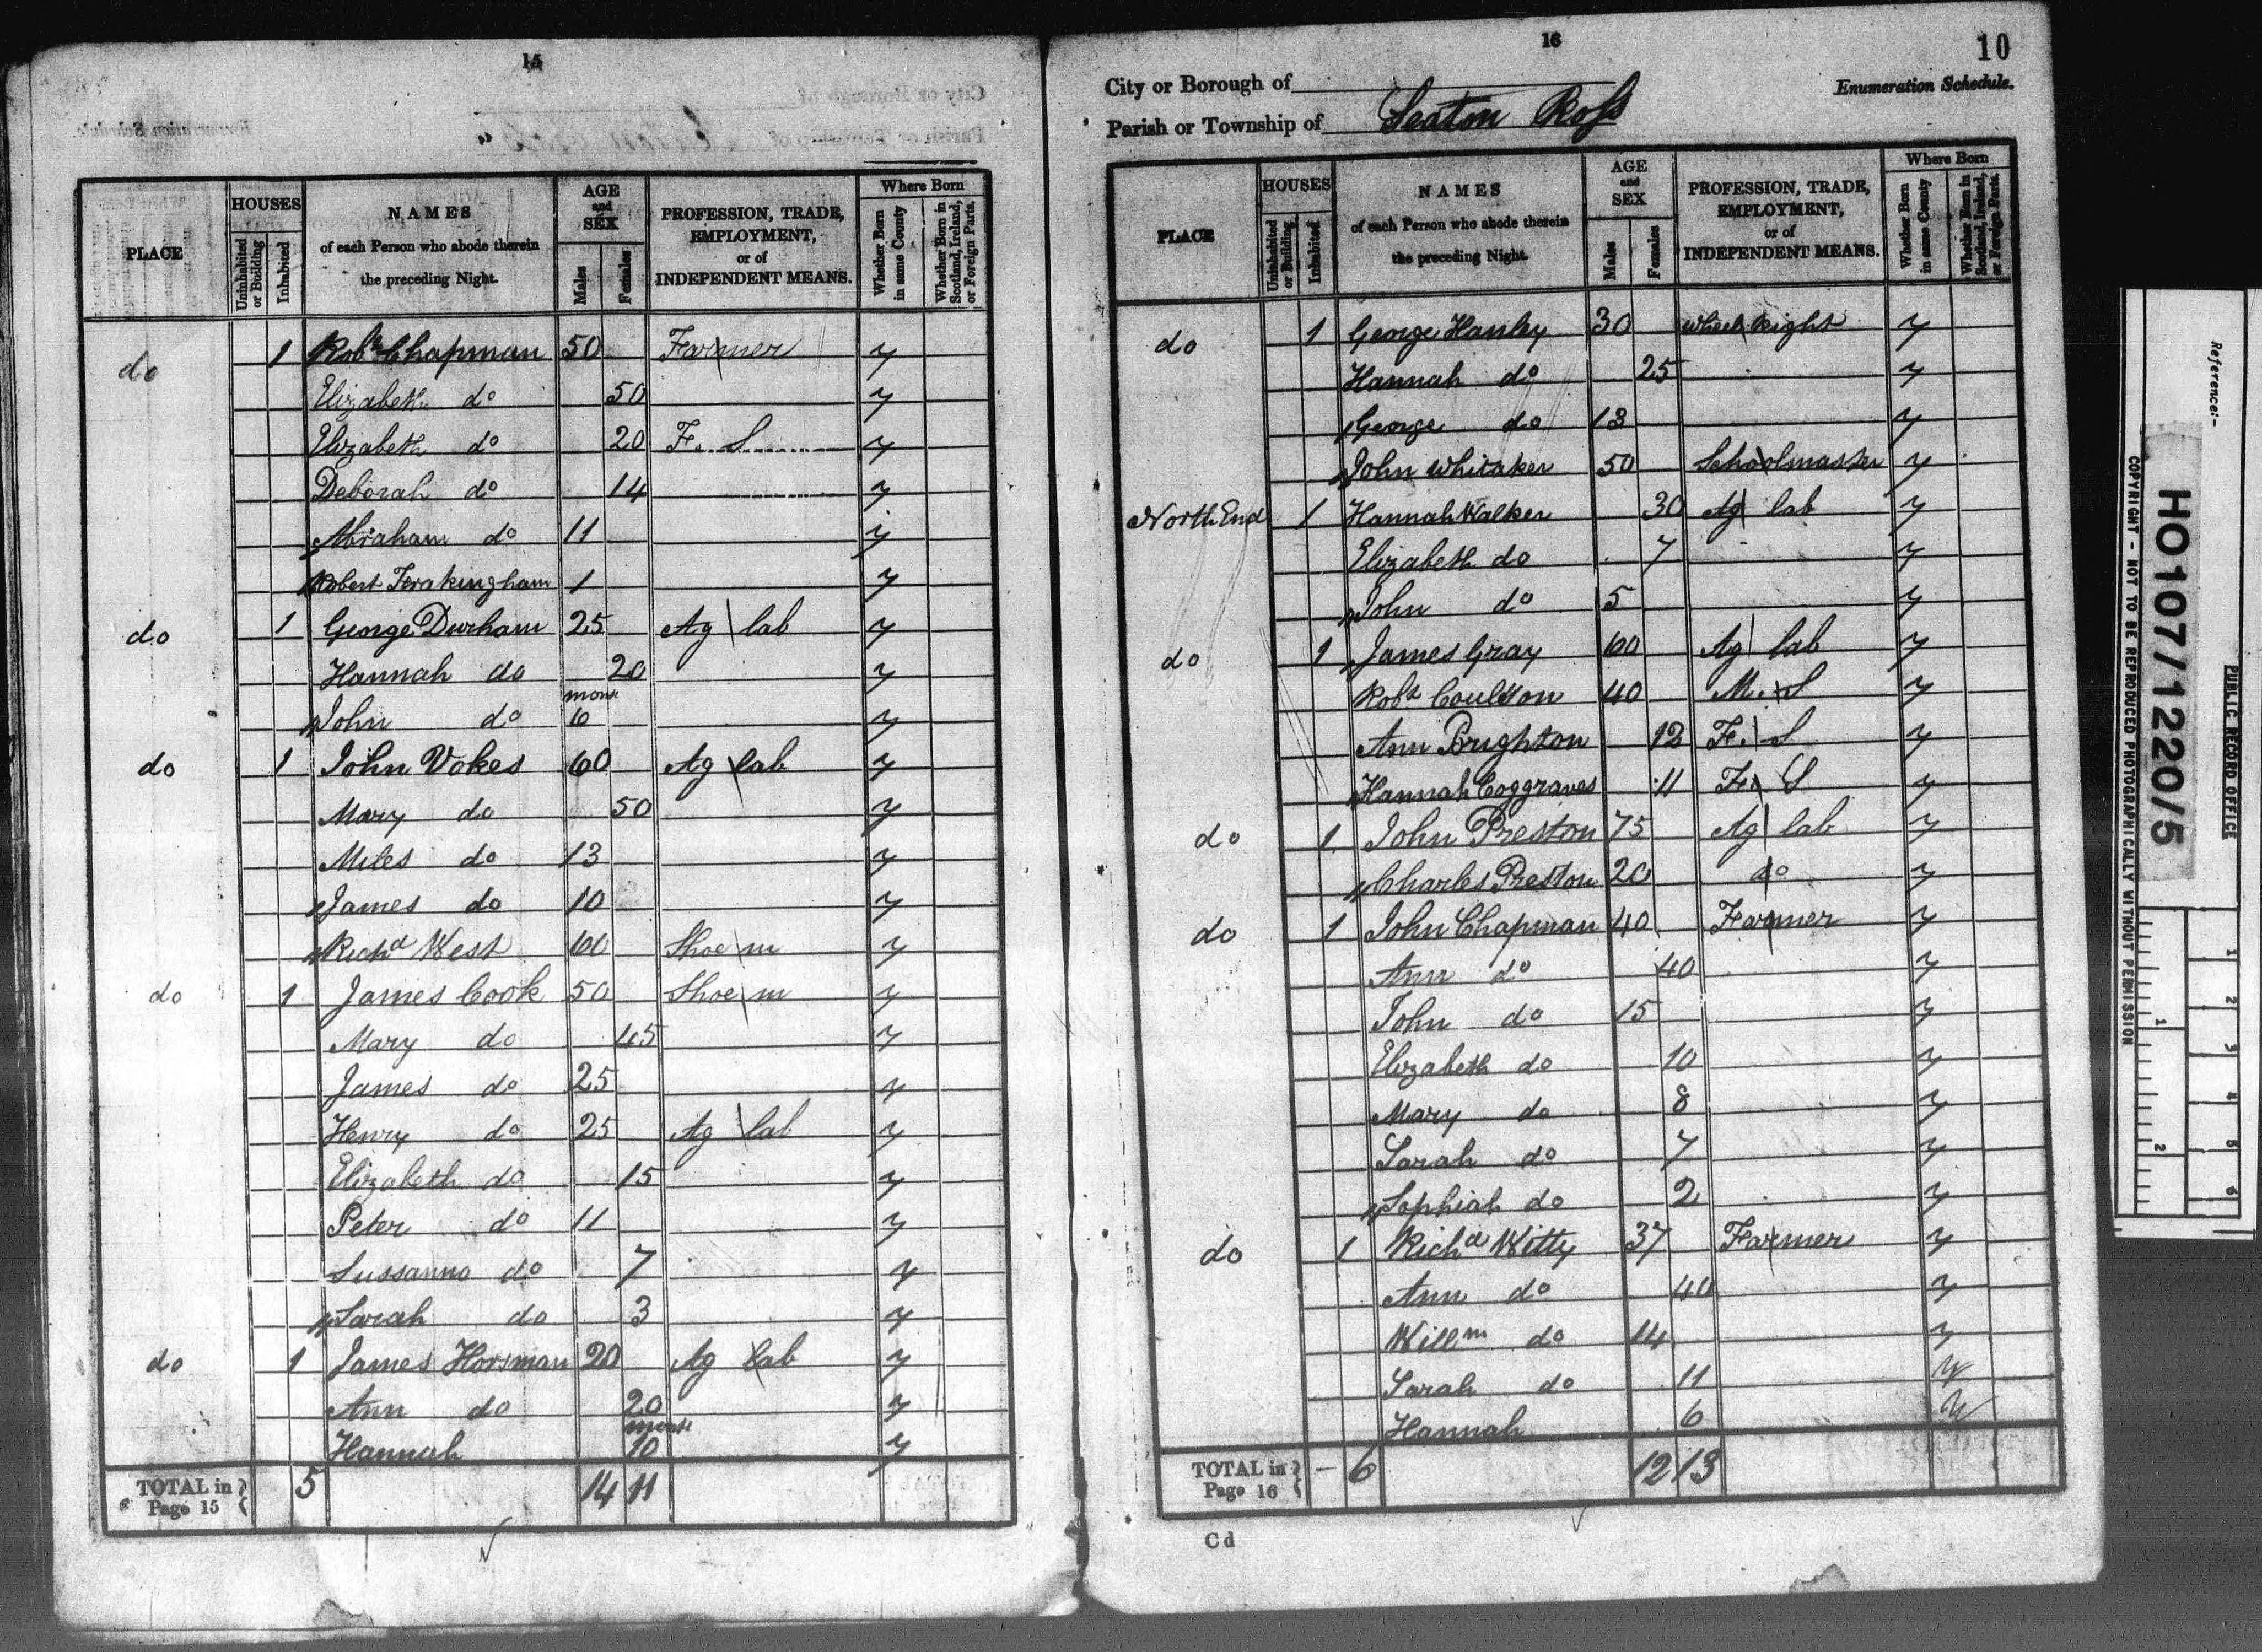 15
PLACE
HOUSES
Uninhabited or Building
Inhabited
NAMES
of each Person who abode therein
the preceding Night.
AGE
and
SEX
Males
Females
PROFESSION, TRADE,
EMPLOYMENT,
or of
INDEPENDENT MEANS.
Where Born
Whether Born in same County
Whether Born in Scotland, Ireland, or Foreign Parts.
do 1 Robt Chapman 50 Farmer y
Elizabeth do 50 y
Elizabeth do 20 F. S y
Deborah do 14 y
Abraham do 11 y
Robert 1 y
do 1 George Durham 25 Ag lab y
Hannah do 20 y
John do 6 y
do 1 John Vokes 60 Ag lab y
Mary do 50 y
Miles do 13 y
James do 10 y
Richd West 60 Shoe m y
do 1 James Cook 50 Shoe m y
Mary do 45 y
James do 25 y
Henry do 25 Ag lab y
Elizabeth do 15 y
Peter do 11 y
Sussanno do 7 y
Sarah do 3 y
do 1 James Horsman 20 Ag lab y
Ann do 20 y
Hannah 10 y
TOTAL in Page 15 5 14 11
16
10
City or Borough of
Enumeration Schedule.
Parish or Township of Seaton Ross
PLACE
HOUSES
Uninhabited or Building
Inhabited
NAMES
of each Person who abode therein
the preceding Night.
AGE
and
SEX
Males
Females
PROFESSION, TRADE,
EMPLOYMENT,
or of
INDEPENDENT MEANS.
Where Born
Whether Born in same County
Whether Born in Scotland, Ireland, or Foreign Parts.
do 1 George Hanley 30 Wheel Right y
Hannah do 25 y
George do 13 y
John Whitaker 50 Schoolmaster y
North End 1 Hannah Walker 30 Ag lab y
Elizabeth do 7 y
John do 5 y
do 1 James Gray 60 Ag lab y
Robt Coulson 40 M. S y
Ann Brighton 12 F. S y
Hannah Coggraves 11 F. S y
do 1 John Preston 75 Ag lab y
Charles Preston 20 do y
do 1 John Chapman 40 Farmer y
Ann do 40 y
John do 15 y
Elizabeth do 10 y
Mary do 8 y
Sarah do 7 y
Sophiah do 2 y
do 1 Richd Witty 37 Farmer y
Ann do 40 y
Willm do 14 y
Sarah do 11
Hannah 6
TOTAL in Page 16 – 6 12 13
Cd
Reference:-
PUBLIC RECORD OFFICE
HO107/1220/5
COPYRIGHT - NOT TO BE REPRODUCED PHOTOGRAPHICALLY WITHOUT PERMISSION
1 2 3 4 5 6
1 2